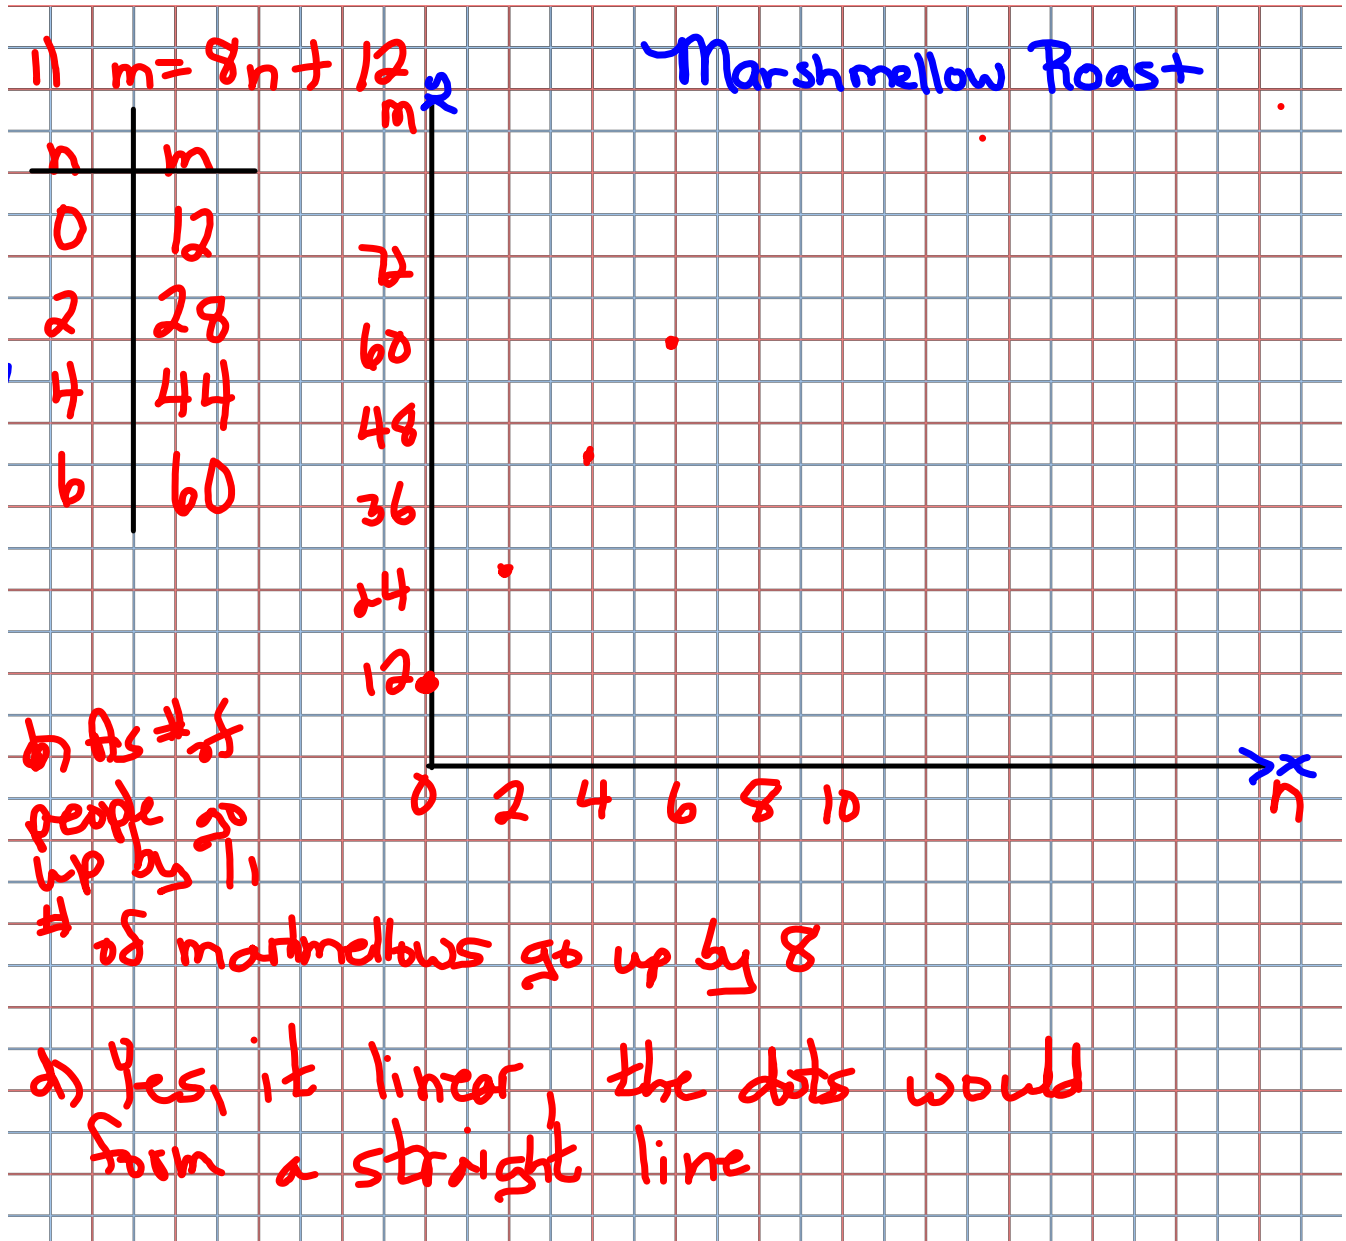 1) m=8n+12
Marshmellow Roast
n m
0 12
2 28
4 44
6 60
y
m
72
60
48
36
24
12
0 2 4 6 8 10
x
n
b) As # of
people go
up by 1,
# of marhmellows go up by 8
d) Yes, it linear, the dots would
form a straight line